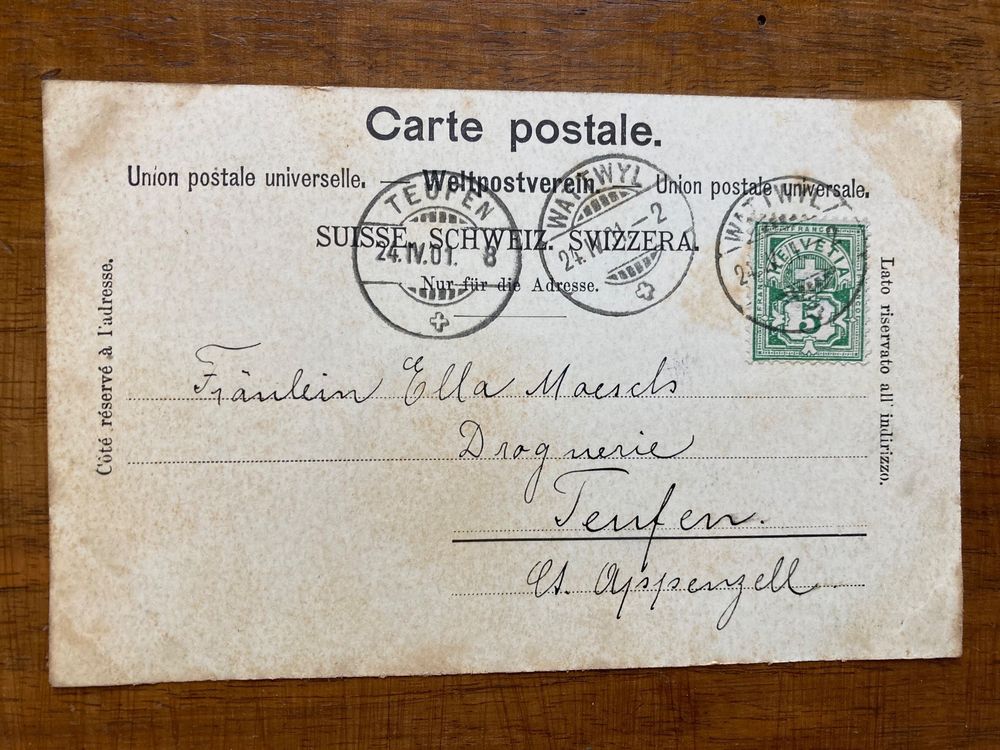 Carte postale.
Union postale universelle. — Weltpostverein. — Union postale universale.
SUISSE. SCHWEIZ. SVIZZERA.
Nur für die Adresse.
Côté réservé à l'adresse.
Lato riservato all' indirizzo.
TEUFEN
24.IV.01. 8
WATTWYL
24.IV.01.-2
WATTWYL
FRANCO
HELVETIA
5
Fräulein Ella
Droguerie
Teufen.
Ct. Appenzell